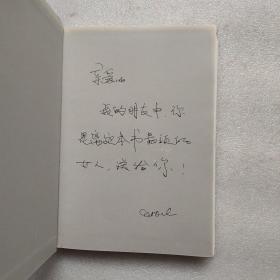 亲爱的
我的朋友中,你
是读这本书最适合的
女人,送给你!
Carol